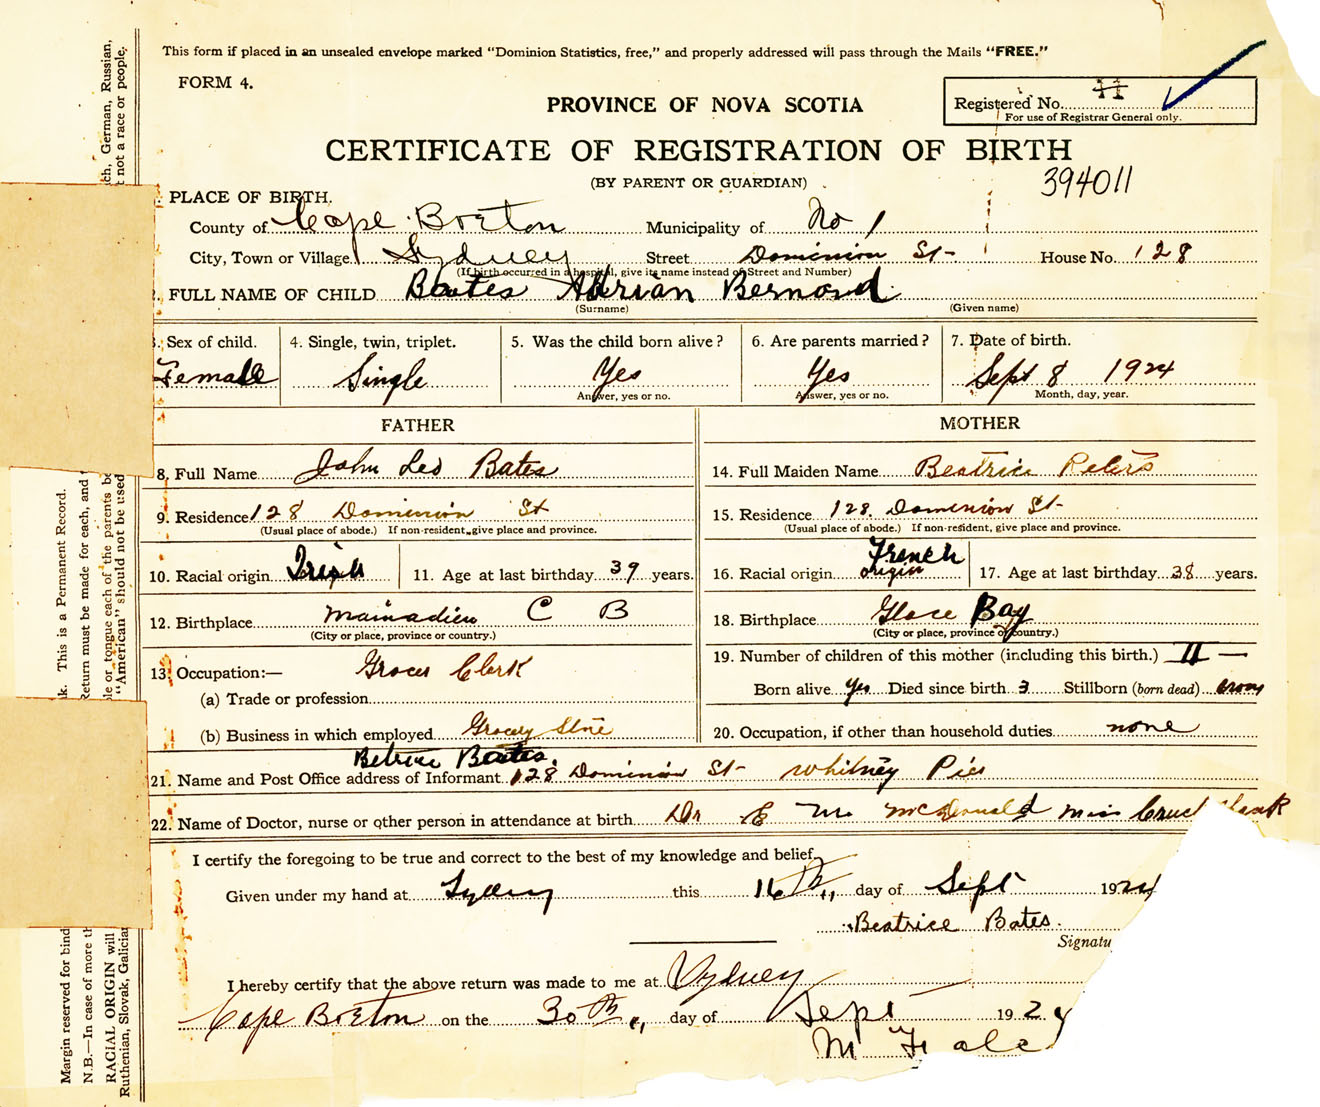 This form if placed in an unsealed envelope marked "Dominion Statistics, free," and properly addressed will pass through the Mails "FREE."
FORM 4.
PROVINCE OF NOVA SCOTIA
Registered No. 11
For use of Registrar General only.
CERTIFICATE OF REGISTRATION OF BIRTH
(BY PARENT OR GUARDIAN)
394011
PLACE OF BIRTH.
County of Cape Breton Municipality of No 1
City, Town or Village Sydney Street Dominion St- House No. 128
(If birth occurred in a hospital, give its name instead of Street and Number)
2. FULL NAME OF CHILD Bates Adrian Bernard
(Surname) (Given name)
3. Sex of child. 4. Single, twin, triplet. 5. Was the child born alive? 6. Are parents married? 7. Date of birth.
Female Single Yes Yes Sept 8 1924
Answer, yes or no. Answer, yes or no. Month, day, year.
FATHER MOTHER
8. Full Name John Leo Bates 14. Full Maiden Name Beatrice Peters
9. Residence 128 Dominion St 15. Residence 128 Dominion St-
(Usual place of abode.) If non-resident, give place and province. (Usual place of abode.) If non-resident, give place and province.
10. Racial origin Irish 11. Age at last birthday 39 years. 16. Racial origin French origin 17. Age at last birthday 38 years.
12. Birthplace Mainadieu C B 18. Birthplace Glace Bay
(City or place, province or country.) (City or place, province or country.)
13. Occupation:— Grocer Clerk 19. Number of children of this mother (including this birth.) 11 —
(a) Trade or profession Born alive Yes Died since birth 3 Stillborn (born dead)
(b) Business in which employed Grocery Store 20. Occupation, if other than household duties none
Bates.
21. Name and Post Office address of Informant 128 Dominion St- Whitney Pier
22. Name of Doctor, nurse or other person in attendance at birth Dr E M McDonald Miss
I certify the foregoing to be true and correct to the best of my knowledge and belief,
Given under my hand at Sydney this 16th day of Sept 1924
Beatrice Bates.
Signatu
I hereby certify that the above return was made to me at Sydney
Cape Breton on the 30th day of Sept 192
Margin reserved for bind
k. This is a Permanent Record.
N.B.—In case of more th
Return must be made for each, and
RACIAL ORIGIN will
ple or tongue each of the parents be
ch, German, Russian,
Ruthenian, Slovak, Galician
"American" should not be used
t not a race or people.